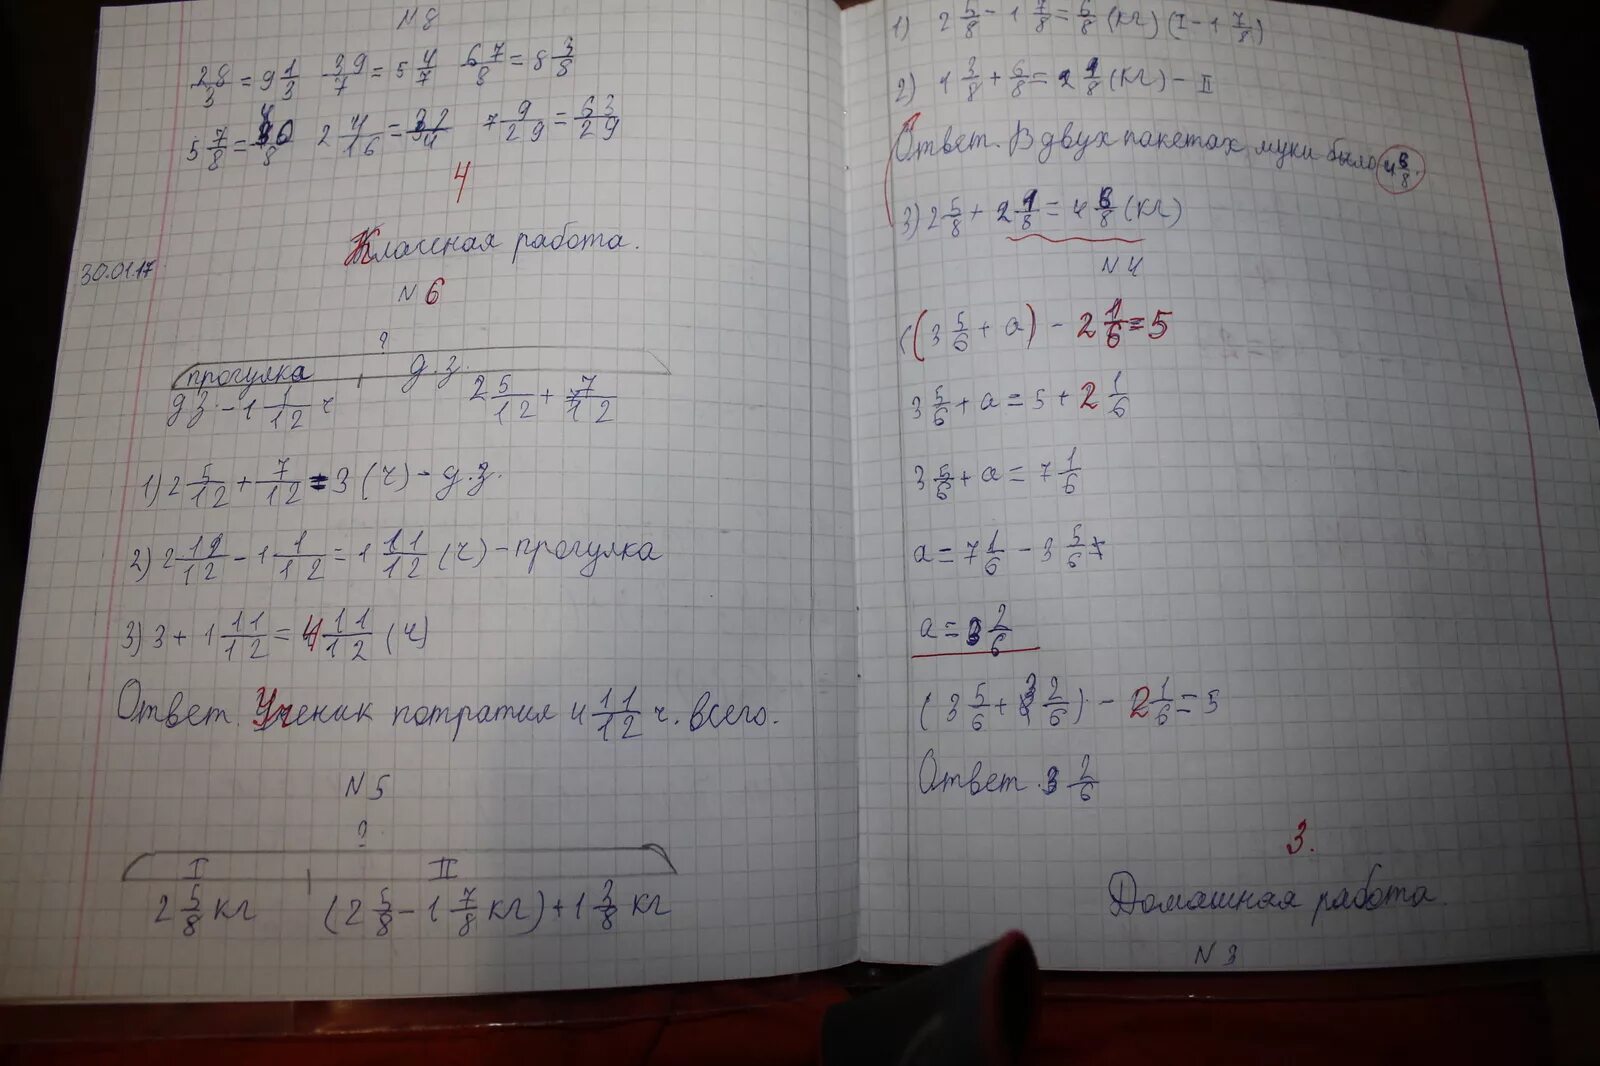 N 8
28/3 = 9 1/3 39/7 = 5 4/7 67/8 = 8 3/8
5 7/8 = 40/8 2 4/16 = 32/4 7 9/29 = 63/29
4
Классная работа.
30.01.17
N 6
?
прогулка д.з.
дз - 1 1/12 ч 2 5/12 + 7/12
1) 2 5/12 + 7/12 = 3 (ч) - д.з.
2) 2 12/12 - 1 1/12 = 1 11/12 (ч) - прогулка
3) 3 + 1 11/12 = 4 11/12 (ч)
Ответ. Ученик потратил 4 11/12 ч. всего.
N 5
?
I II
2 5/8 кг (2 5/8 - 1 7/8 кг) + 1 3/8 кг
1) 2 5/8 - 1 7/8 = 6/8 (кг) (I - 1 7/8)
2) 1 3/8 + 6/8 = 2 1/8 (кг) - II
Ответ. В двух пакетах муки было 4 6/8.
3) 2 5/8 + 2 1/8 = 4 6/8 (кг)
N 4
((3 5/6 + a) - 2 1/6 = 5
3 5/6 + a = 5 + 2 1/6
3 5/6 + a = 7 1/6
a = 7 1/6 - 3 5/6
a = 3 2/6
(3 5/6 + 3 2/6) - 2 1/6 = 5
Ответ. 3 2/6
3.
Домашная работа.
N 3